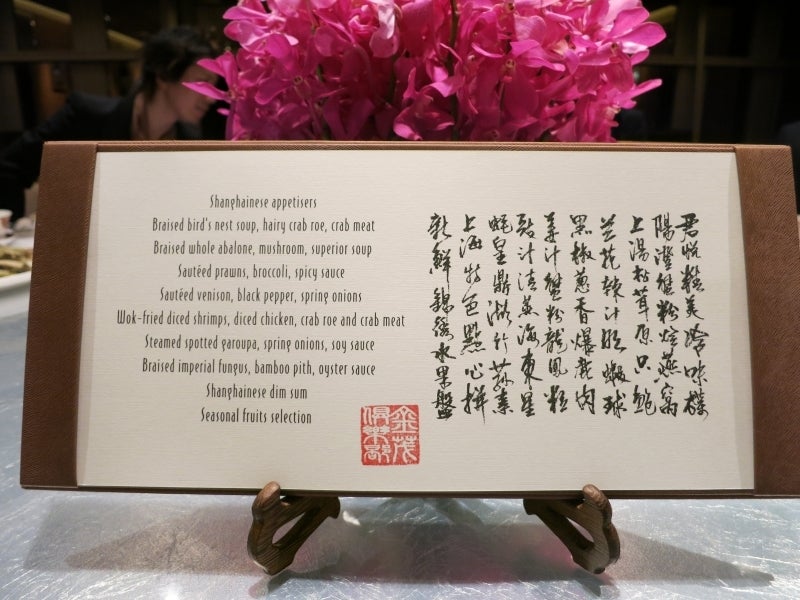 Shanghainese appetisers
Braised bird's nest soup, hairy crab roe, crab meat
Braised whole abalone, mushroom, superior soup
Sautéed prawns, broccoli, spicy sauce
Sautéed venison, black pepper, spring onions
Wok-fried diced shrimps, diced chicken, crab roe and crab meat
Steamed spotted garoupa, spring onions, soy sauce
Braised imperial fungus, bamboo pith, oyster sauce
Shanghainese dim sum
Seasonal fruits selection
君悦精美冷味碟
陽澄蟹粉烩燕窝
上湯松茸原只鮑
兰花辣汁炒蝦球
黑椒葱香爆鹿肉
姜汁蟹粉龍鳳粒
豉汁清蒸海東星
蚝皇鼎湖竹荪素
上海特色點心拼
新鮮錦繡水果盤
金茂
俱樂部